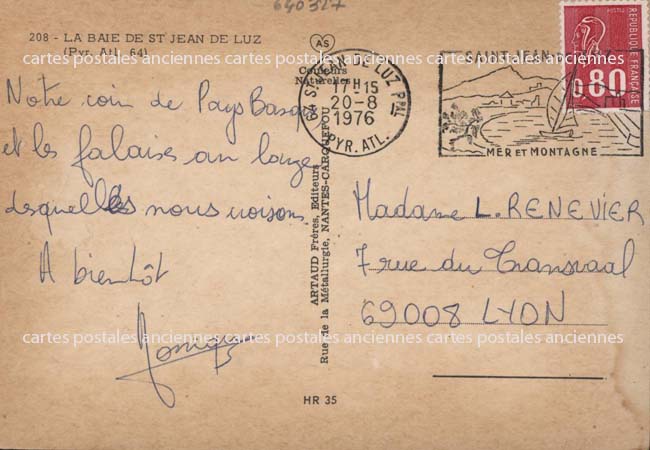 640327
208 - LA BAIE DE ST JEAN DE LUZ
(Pyr. Atl. 64)
AS
Couleurs
Naturelles
64 ST JEAN DE LUZ PPAL
17H15
20-8
1976
PYR. ATL.
SAINT JEAN DE LUZ
MER ET MONTAGNE
0,80
REPUBLIQUE FRANÇAISE
cartes postales anciennes cartes postales anciennes cartes postales anciennes
Notre coin de Pays Basque
et les falaises au long
desquelles nous
A bientôt
Monique
ARTAUD Frères, Editeurs
Rue de la Métallurgie, NANTES-CARQUEFOU
Madame L. RENEVIER
7 rue du Transvaal
69008 LYON
cartes postales anciennes cartes postales anciennes cartes postales anciennes
cartes postales anciennes cartes postales anciennes cartes postales anciennes
HR 35